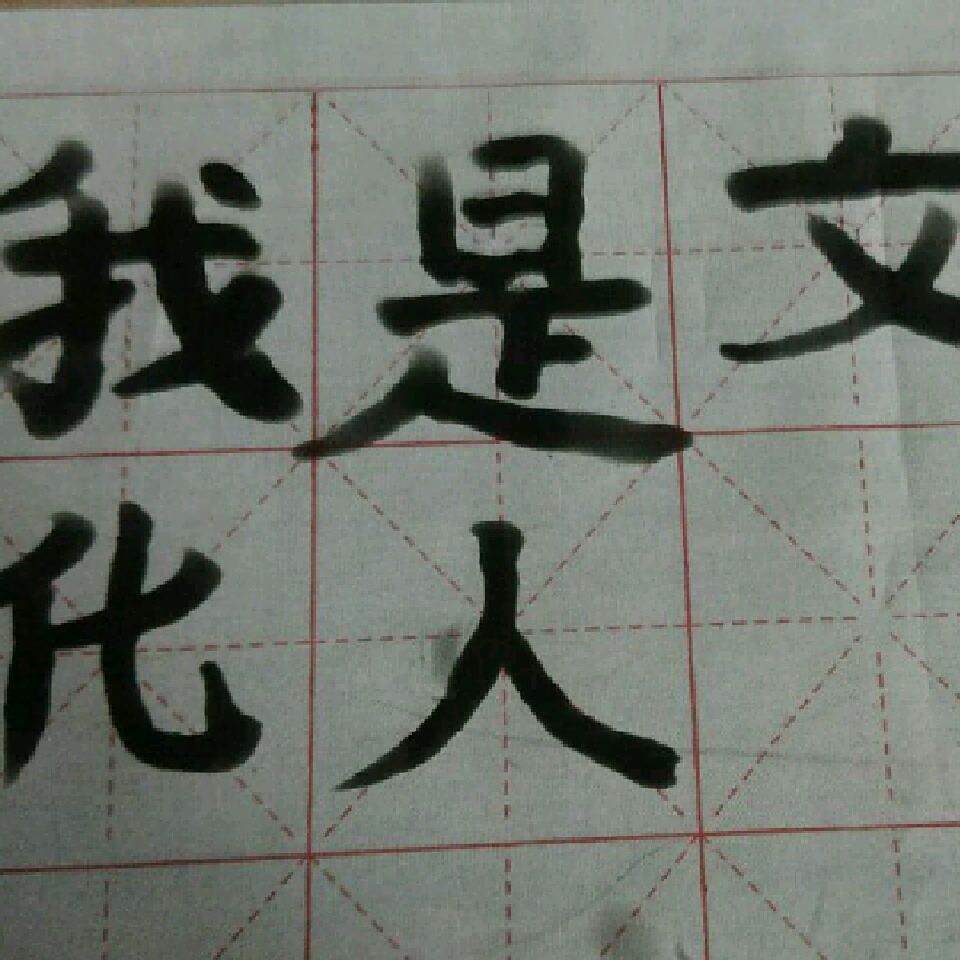 我是文
化人